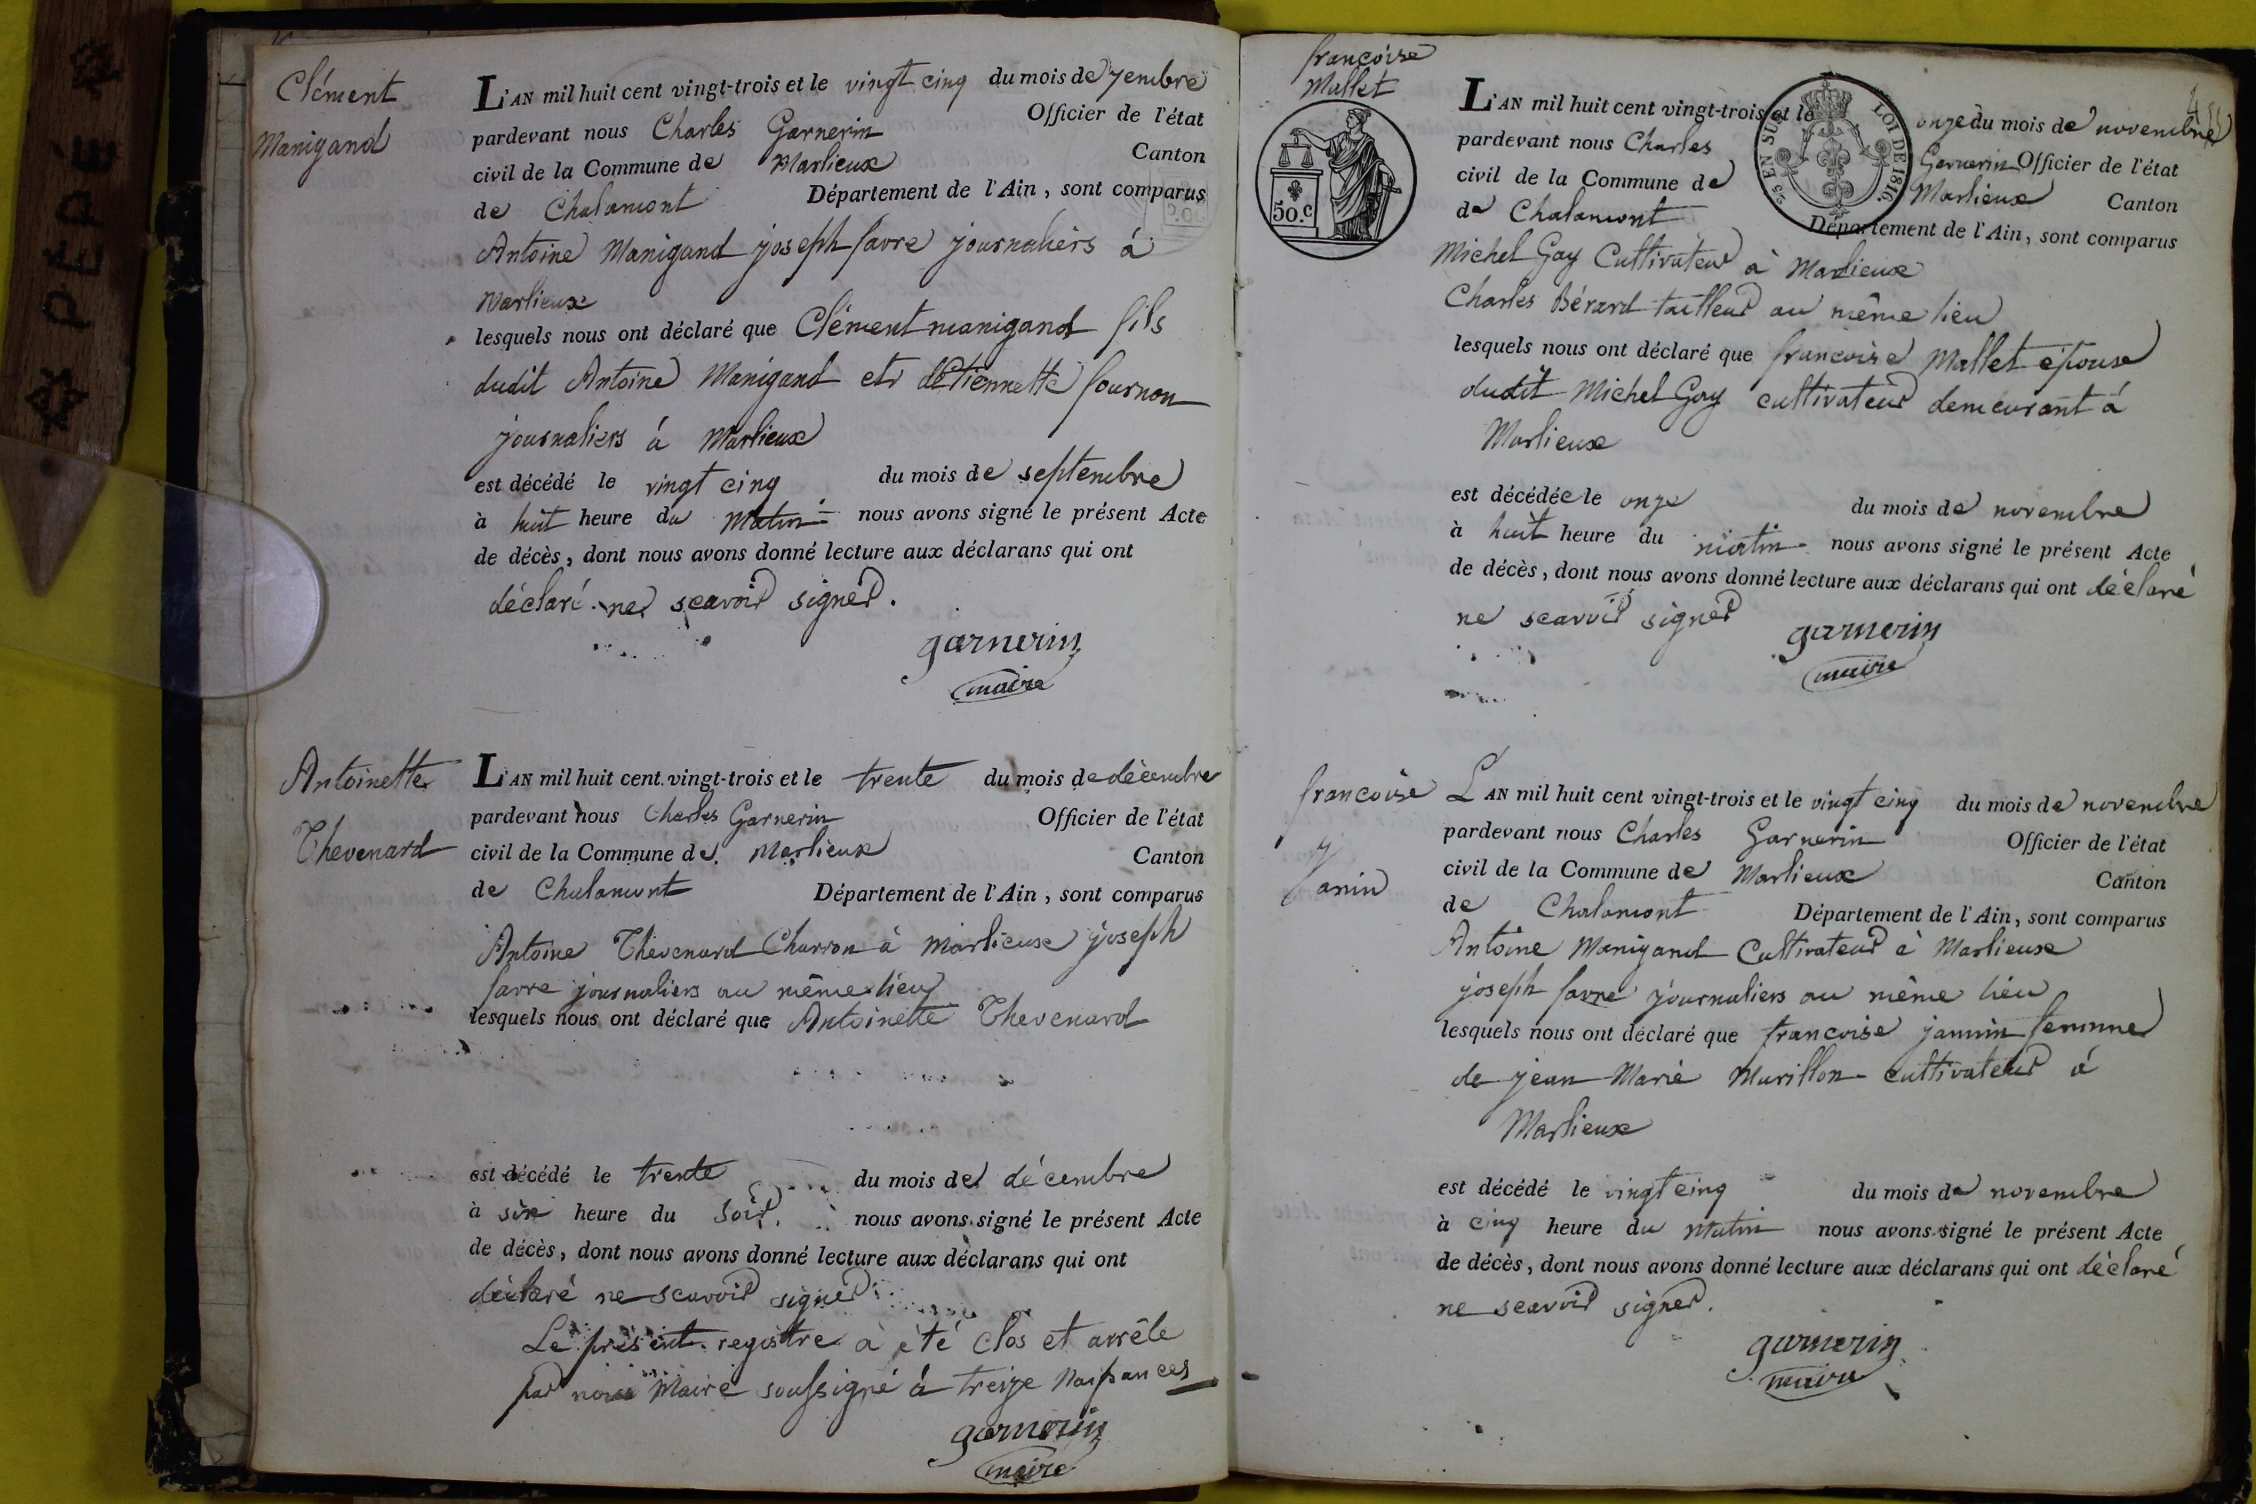 PÉPÉ
Clément
Manigand
L'AN mil huit cent vingt-trois et le vingt cinq du mois de 7embre
pardevant nous Charles Garnerin Officier de l'état
civil de la Commune de Marlieux Canton
de Chalamont Département de l'Ain, sont comparus
Antoine Manigand joseph favre journaliers à
Marlieux
lesquels nous ont déclaré que Clément manigand fils
dudit Antoine Manigand et d'Etiennette fournon
journaliers á Marlieux
est décédé le vingt cinq du mois de septembre
à huit heure du Matin nous avons signé le présent Acte
de décès, dont nous avons donné lecture aux déclarans qui ont
déclaré ne scavoir signer.
garnerin
maire
Antoinette
Thevenard
L'AN mil huit cent vingt-trois et le trente du mois de décembre
pardevant nous Charles Garnerin Officier de l'état
civil de la Commune de Marlieux Canton
de Chalamont Département de l'Ain, sont comparus
Antoine Thevenard Charron à Marlieux joseph
favre journaliers au même lieu
lesquels nous ont déclaré que Antoinette Thevenard
est décédé le trente du mois de décembre
à six heure du Soir. nous avons signé le présent Acte
de décès, dont nous avons donné lecture aux déclarans qui ont
déclaré ne scavoir signer
Le présent registre à été clos et arrêle
par nous Maire soussigné à treize Naissances
garnerin
maire
françoise
Mallet
50.c
25 EN SUS LOI DE 1816.
L'AN mil huit cent vingt-trois et le onze du mois de novembre
pardevant nous Charles Garnerin Officier de l'état
civil de la Commune de Marlieux Canton
de Chalamont Département de l'Ain, sont comparus
Michel Gay Cultivateur à Marlieux
Charles Bérard tailleur au même lieu
lesquels nous ont déclaré que francoise Mallet épouse
dudit Michel Gay cultivateur demeurant á
Marlieux
est décédée le onze du mois de novembre
à huit heure du matin nous avons signé le présent Acte
de décès, dont nous avons donné lecture aux déclarans qui ont déclaré
ne scavoir signer
garnerin
maire
francoise
janin
L'AN mil huit cent vingt-trois et le vingt cinq du mois de novembre
pardevant nous Charles Garnerin Officier de l'état
civil de la Commune de Marlieux Canton
de Chalamont Département de l'Ain, sont comparus
Antoine Manigand Cultivateur à Marlieux
joseph favre journaliers au même lieu
lesquels nous ont déclaré que francoise jannin femme
de jean Marie Murillon cultivateur á
Marlieux
est décédé le vingt cinq du mois de novembre
à cinq heure du Matin nous avons signé le présent Acte
de décès, dont nous avons donné lecture aux déclarans qui ont déclaré
ne scavoir signer.
garnerin
maire